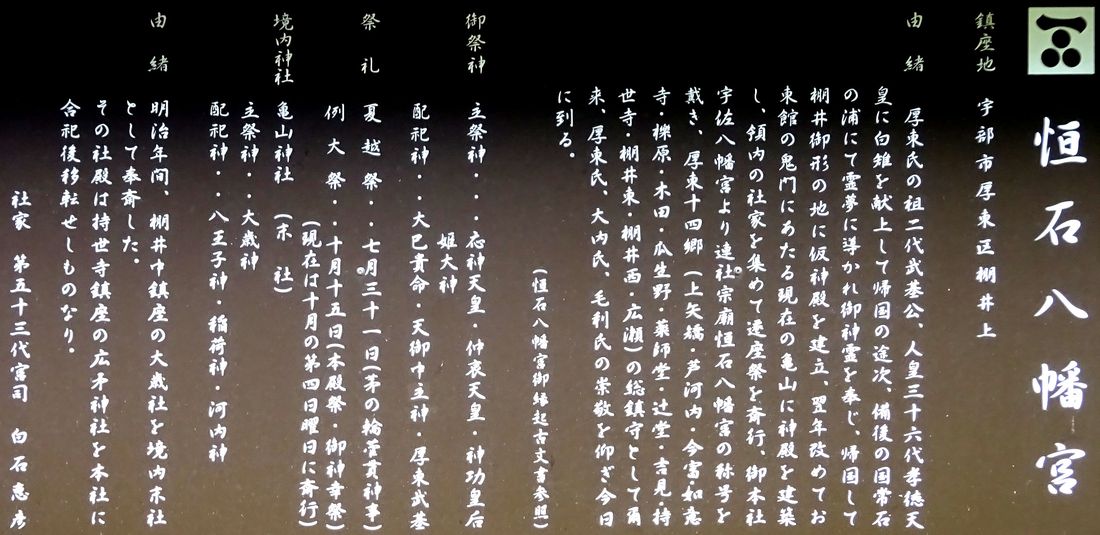 恒石八幡宮
鎮座地　宇部市厚東区棚井上
由緒
厚東氏の祖二代武基公、人皇三十六代孝徳天
皇に白雉を献上して帰国の途次、備後の国常石
の浦にて霊夢に導かれ御神霊を奉じ、帰国して
棚井御形の地に仮神殿を建立、翌年改めてお
東館の鬼門にあたる現在の亀山に神殿を建築
し、領内の社家を集めて遷座祭を斉行、御本社
宇佐八幡宮より連社宗廟恒石八幡宮の称号を
戴き、厚東十四郷(上矢矯・芦河内・今富・如意
寺・櫟原・木田・瓜生野・薬師堂・辻堂・吉見・持
世寺・棚井東・棚井西・広瀬)の総鎮守として爾
来、厚東氏、大内氏、毛利氏の崇敬を仰ぎ今日
に到る。
(恒石八幡宮御縁起古文書参照)
御祭神　主祭神・・・応神天皇・仲哀天皇・神功皇后
姫大神
配祀神・・大己貴命・天御中主神・厚東武基
祭礼　夏越祭・・七月三十一日(茅の輪菅貫神事)
例大祭・・十月十五日(本殿祭・御神幸祭)
(現在は十月の第四日曜日に斉行)
境内神社　亀山神社　(末社)
主祭神・・大歳神
配祀神・・八王子神・稲荷神・河内神
由緒　明治年間、棚井中鎮座の大歳社を境内末社
として奉斉した。
その社殿は持世寺鎮座の広矛神社を本社に
合祀後移転せしものなり。
社家　第五十三代宮司　白石恵彦